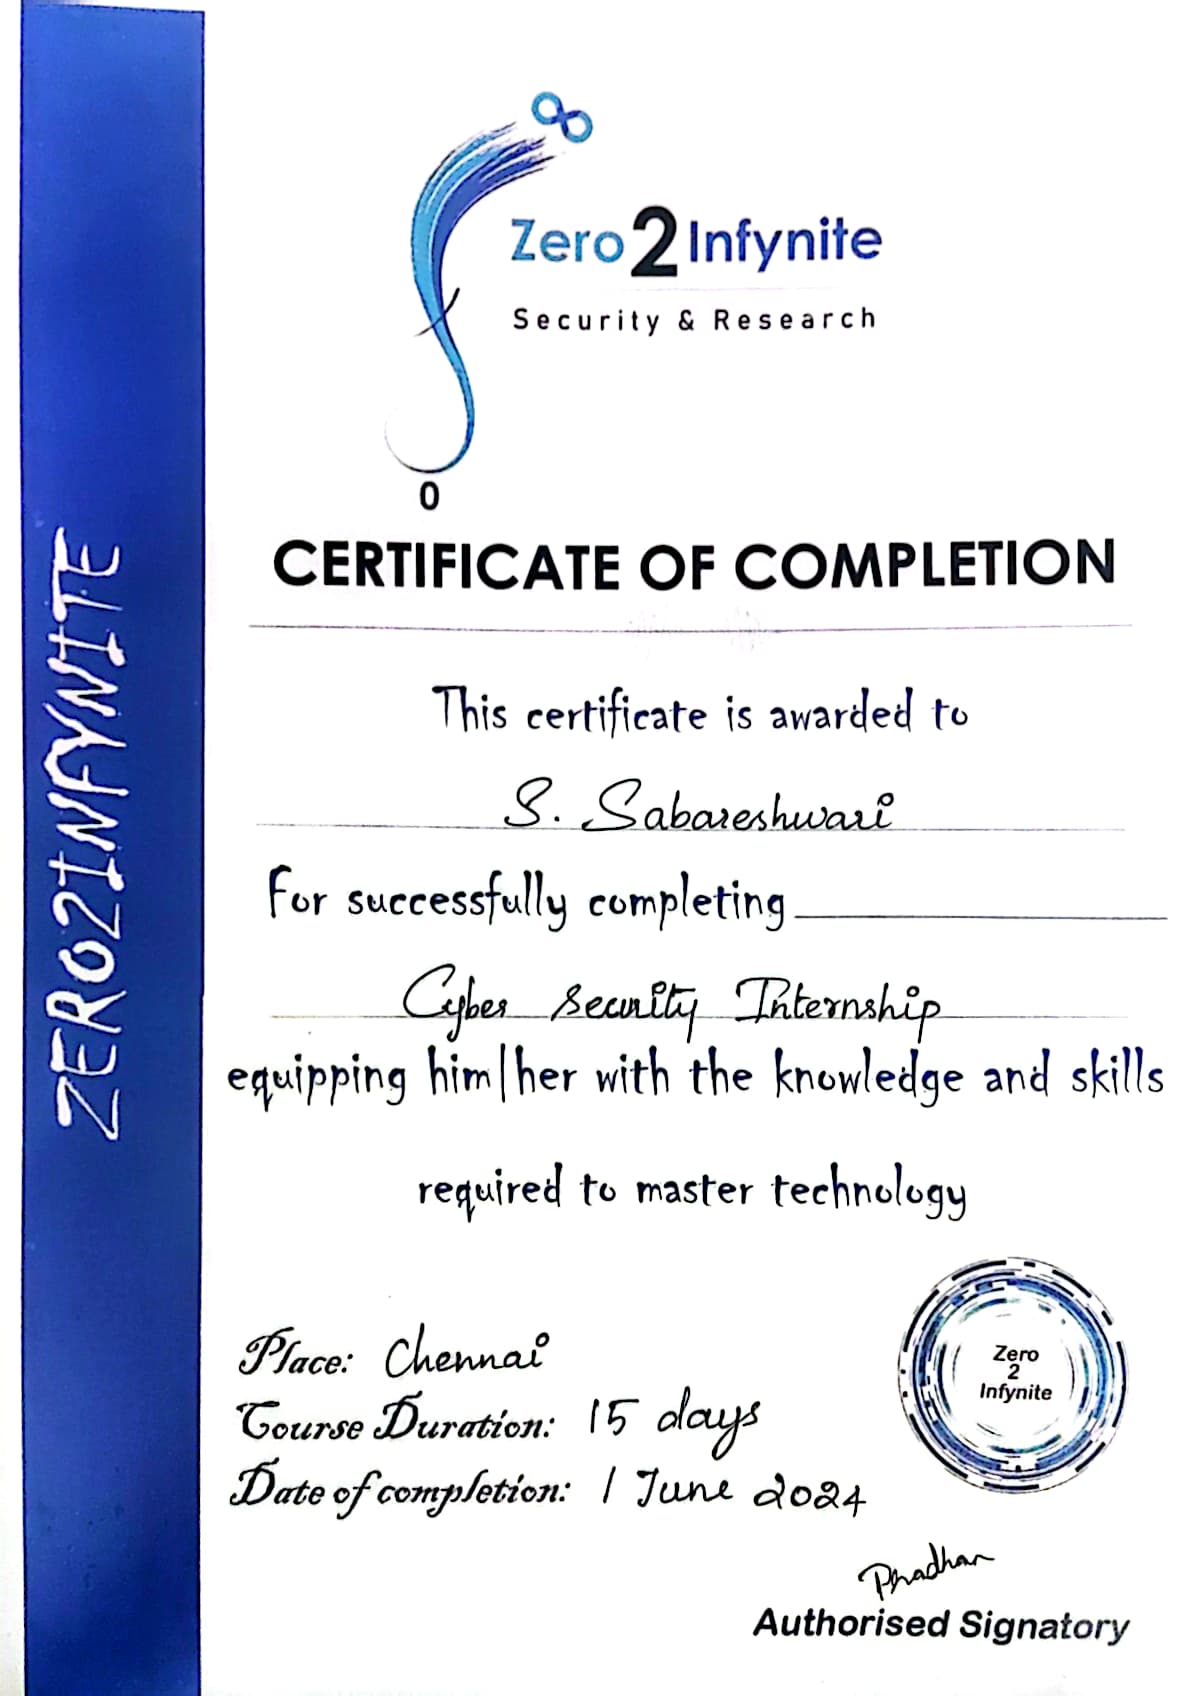 Zero2Infynite
Security & Research
0
CERTIFICATE OF COMPLETION
This certificate is awarded to
S. Sabareshwari
For successfully completing
Cyber Security Internship
equipping him/her with the knowledge and skills
required to master technology
Place: Chennai
Course Duration: 15 days
Date of completion: 1 June 2024
Zero
2
Infynite
Pradhan
Authorised Signatory
ZERO2INFYNITE